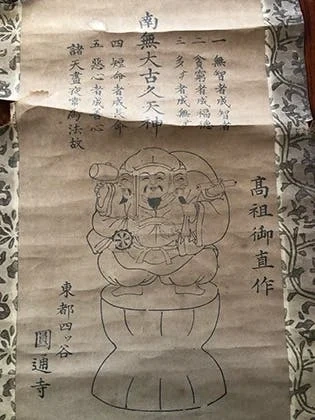 一 無智者成智者
二 貧窮者成福徳
三 多者成無
南無大古久天神
四 短命者成長命
五 惡心者成善心
諸天晝夜常為法故
高祖御直作
東都四ッ谷
圓通寺